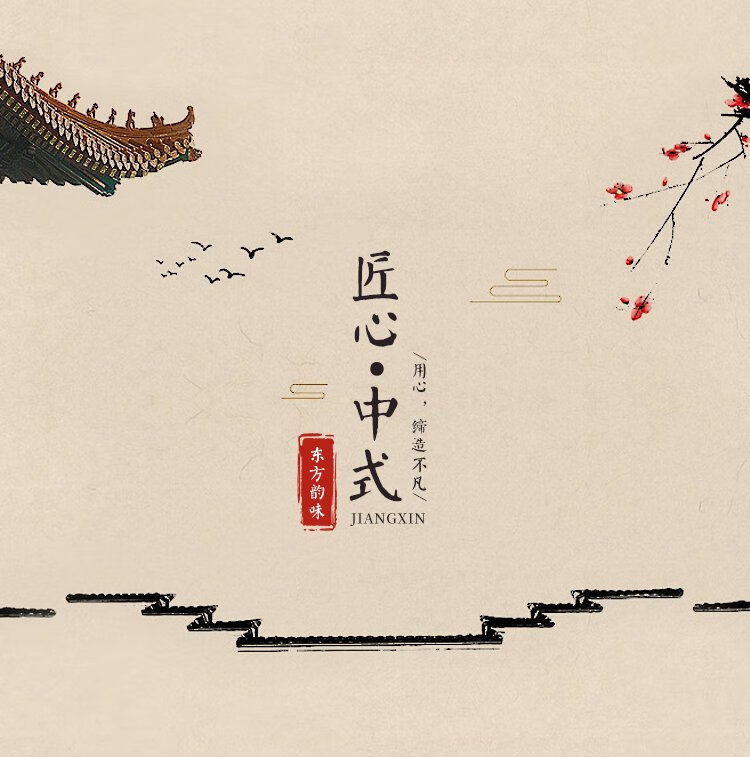 匠心·中式
用心，缔造不凡
东方韵味
JIANGXIN